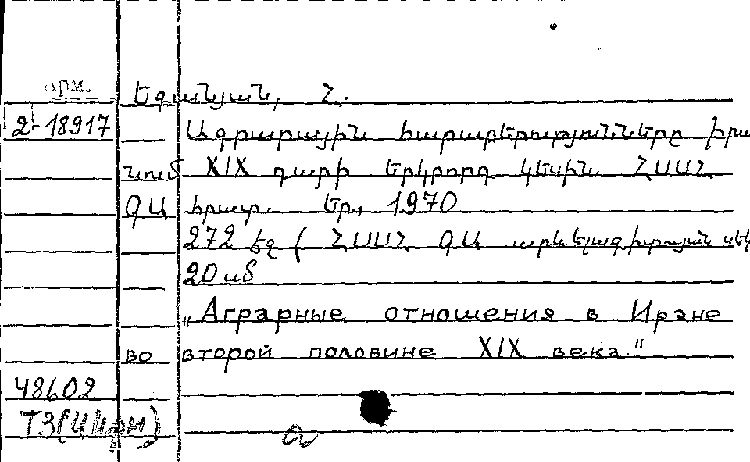 арм.
Եգանյան, Հ.
2-18917 Ագրարային հարաբերությունները Իրա
նում XIX դարի երկրորդ կեսին. ՀՍՍՀ
ԳԱ հրատ. Եր., 1970
272 էջ ( ՀՍՍՀ ԳԱ արևելագիտության սեկ
20 սմ
„Аграрные отношения в Иране
во второй половине XIX века."
48602
Т3(